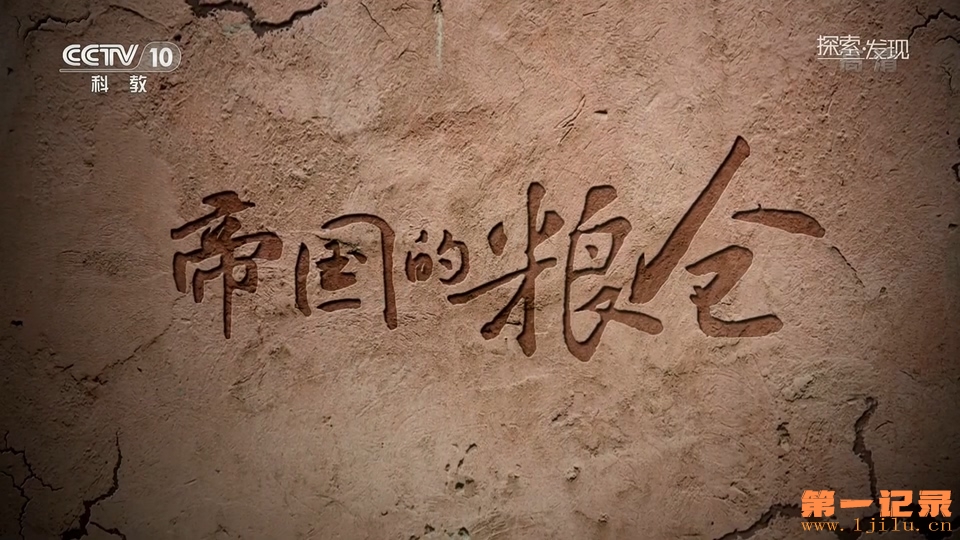 CCTV 10
科教
探索·发现
高清
帝国的粮仓
第一记录
www.1jilu.cn